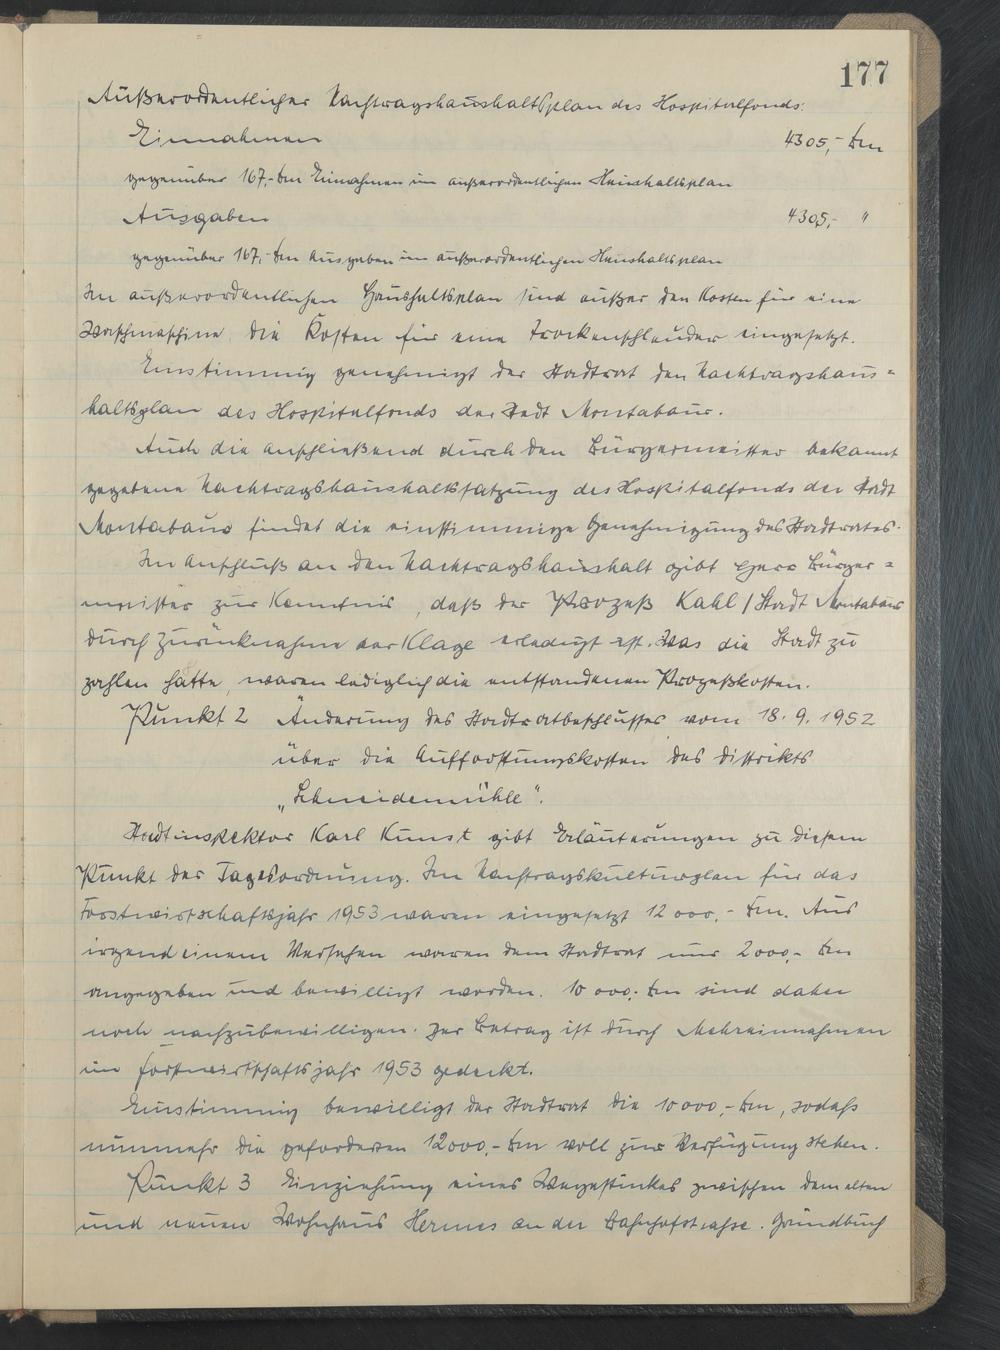 177
Außerordentlicher Nachtragshaushaltsplan des Hospitalfonds:
Einnahmen 4305,- Dm
gegenüber 167,- Dm Einnahmen im außerordentlichen Haushaltsplan
Ausgaben 4305,- "
gegenüber 167,- Dm Ausgaben im außerordentlichen Haushaltsplan
Im außerordentlichen Haushaltsplan sind außer den Kosten für eine
Waschmaschine die Kosten für eine Trockenschleuder eingesetzt.
Einstimmig genehmigt der Stadtrat den Nachtragshaus=
haltsplan des Hospitalfonds der Stadt Montabaur.
Auch die anschließend durch den Bürgermeister bekannt
gegebene Nachtragshaushaltssatzung des Hospitalfonds der Stadt
Montabaur findet die einstimmige Genehmigung des Stadtrates.
Im Anschluß an den Nachtragshaushalt gibt Herr Bürger=
meister zur Kenntnis, daß der Prozeß Kahl / Stadt Montabaur
durch Zurücknahme der Klage erledigt ist. Was die Stadt zu
zahlen hatte, waren lediglich die entstandenen Prozeßkosten.
Punkt 2 Änderung des Stadtratbeschlusses vom 18.9.1952
über die Aufforstungskosten des Distrikts
„Schneidemühle".
Stadtinspektor Karl Kunst gibt Erläuterungen zu diesem
Punkt der Tagesordnung. Im Nachtragskulturplan für das
Forstwirtschaftsjahr 1953 waren eingesetzt 12 000,- Dm. Aus
irgend einem Versehen waren dem Stadtrat nur 2000,- Dm
angegeben und bewilligt worden. 10 000,- Dm sind daher
noch nachzubewilligen. Der Betrag ist durch Mehreinnahmen
im Forstwirtschaftsjahr 1953 gedeckt.
Einstimmig bewilligt der Stadtrat die 10 000,- Dm, sodaß
nunmehr die geforderten 12000,- Dm voll zur Verfügung stehen.
Punkt 3 Einziehung eines Wegestückes zwischen dem alten
und neuen Wohnhaus Hermes an der Bahnhofstrasse. Grundbuch